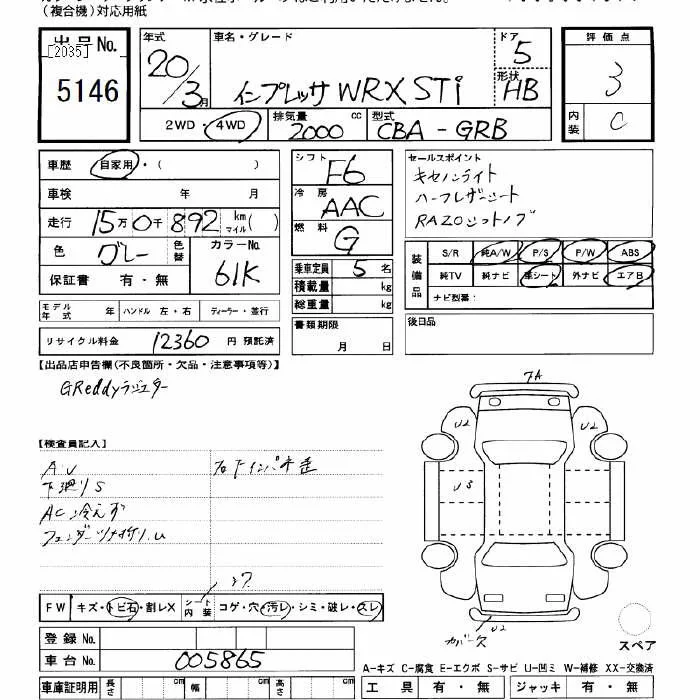 (複合機)対応用紙
出品No.
[2035]
5146
年式 20/3月
車名・グレード インプレッサ WRX STi
ドア 5
形状 HB
2WD・4WD
排気量 2000 cc
型式 CBA - GRB
評価点 3
内装 C
車歴 自家用・( )
車検 年 月
走行 15万0千892 km マイル( )
色 グレー 色替 カラーNo. 61K
保証書 有・無
モデル年式 年 ハンドル 左・右 ディーラー・並行
リサイクル料金 12360 円 預託済
シフト F6
冷房 AAC
燃料 G
乗車定員 5 名
積載量 kg
総重量 kg
書類期限
月 日
セールスポイント
キセノンライト
ハーフレザーシート
RAZOシフトノブ
装備品
S/R 純A/W P/S P/W ABS
純TV 純ナビ 革シート 外ナビ エアB
ナビ型番:
後日品
【出品店申告欄(不良箇所・欠品・注意事項等)】
GReddyラジエター
【検査員記入】
A.U
下廻りS
AC冷えず
FW キズ・トビ石・割レX シート内装 コゲ・穴・汚レ・シミ・破レ・スレ
登録No.
車台No. 005865
車庫証明用 長さ cm 幅 cm 高さ cm
7A
U2
U2
US
U2
スペア
A-キズ C-腐食 E-エクボ S-サビ U-凹ミ W-補修 XX-交換済
工具 有・無 ジャッキ 有・無